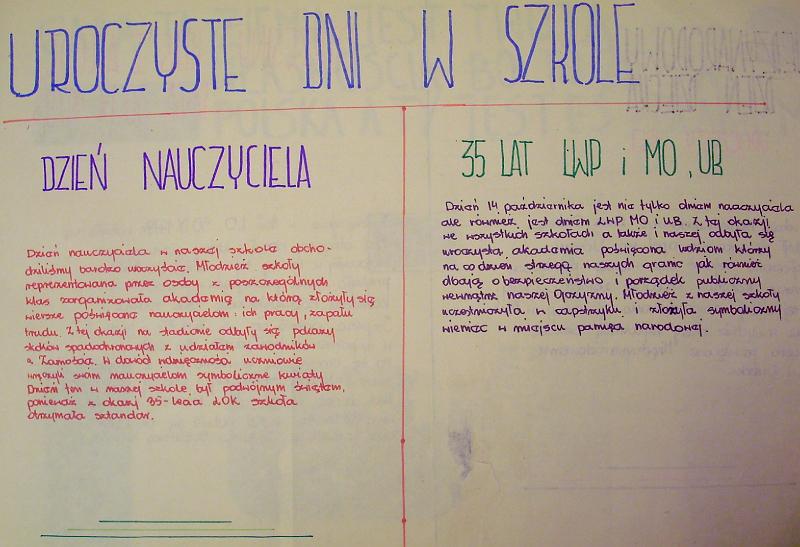 UROCZYSTE DNI W SZKOLE
DZIEŃ NAUCZYCIELA
Dzień nauczyciela w naszej szkole obcho-
dziliśmy bardzo uroczyście. Młodzież szkoły
reprezentowana przez osoby z poszczególnych
klas zorganizowała akademię na którą złożyły się
wiersze poświęcone nauczycielom: ich pracy, zapału
trudu. Z tej okazji na stadionie odbyły się pokazy
skoków spadochronowych z udziałem zawodników
z Zamościa. W dowód wdzięczności uczniowie
wręczyli swoim nauczycielom symboliczne kwiaty
Dzień ten w naszej szkole był podwójnym świętem,
ponieważ z okazji 35-lecia LOK szkoła
otrzymała sztandar.
35 LAT LWP i MO, UB
Dzień 14 października jest nie tylko dniem nauczyciela
ale również jest dniem LWP MO i UB. Z tej okazji
we wszystkich szkołach a także i naszej odbyła się
uroczysta akademia poświęcona ludziom którzy
na co dzień strzegą naszych granic jak również
dbają o bezpieczeństwo i porządek publiczny
wewnątrz naszej Ojczyzny. Młodzież z naszej szkoły
uczestniczyła w capstrzyku i złożyła symboliczny
wieniec w miejscu pamięci narodowej.